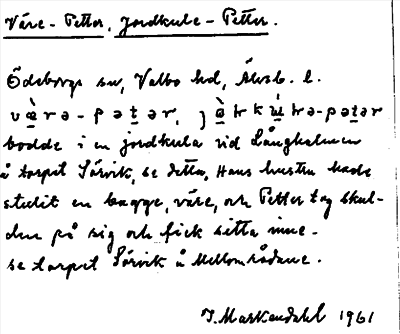 Väre-Petter, Jordkule-Petter.
Ödeborgs sn, Valbo hd, Älvsb. l.
bodde i en jordkula vid Långholmen
å torpet Sörvik, se detta, Hans hustru hade
stulit en bagge, väre, och Petter tog skul-
den på sig och fick sitta inne.
se torpet Sörvik å Mellområdane.
J. Markendahl 1961